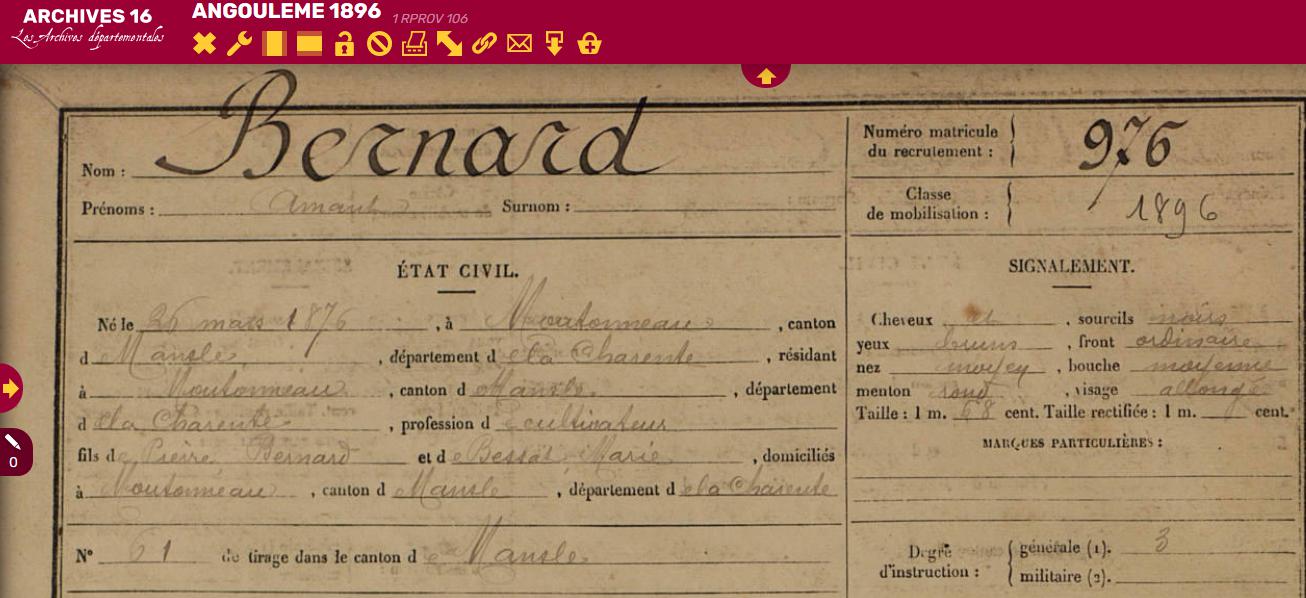 ARCHIVES 16
Les Archives départementales
ANGOULEME 1896 1 RPROV 106
Nom : Bernard
Prénoms : Amant Surnom :
Numéro matricule du recrutement : 976
Classe de mobilisation : 1896
ÉTAT CIVIL.
Né le 26 mars 1876, à Moutonneau, canton
de Mansle, département de la Charente, résidant
à Moutonneau, canton de Mansle, département
de la Charente, profession de cultivateur
fils de Pierre Bernard et de Bessat, Marie, domiciliés
à Moutonneau, canton de Mansle, département de la Charente
N° 61 de tirage dans le canton de Mansle
SIGNALEMENT.
Cheveux et, sourcils noirs
yeux bruns, front ordinaire
nez moyen, bouche moyenne
menton rond, visage allongé
Taille : 1 m. 68 cent. Taille rectifiée : 1 m. cent.
MARQUES PARTICULIÈRES :
Degré d'instruction : générale (1). 3
militaire (2).
0